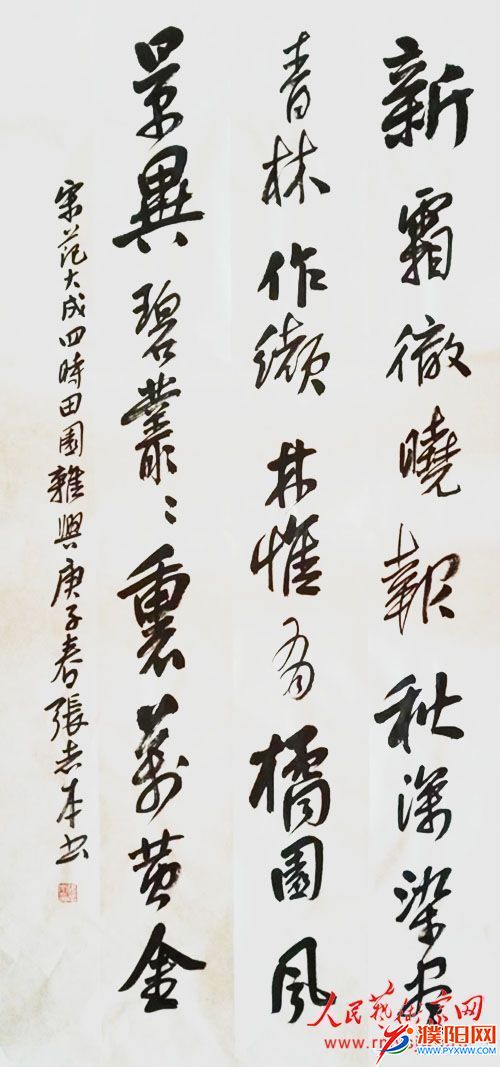 新霜徹曉報秋深染盡
青林作纈林惟有橘園風
景異碧叢〻裏萬黄金
宋范大成四時田園雜興庚子春張志本書
人民藝術家网
濮阳网
WWW.PYXWW.COM